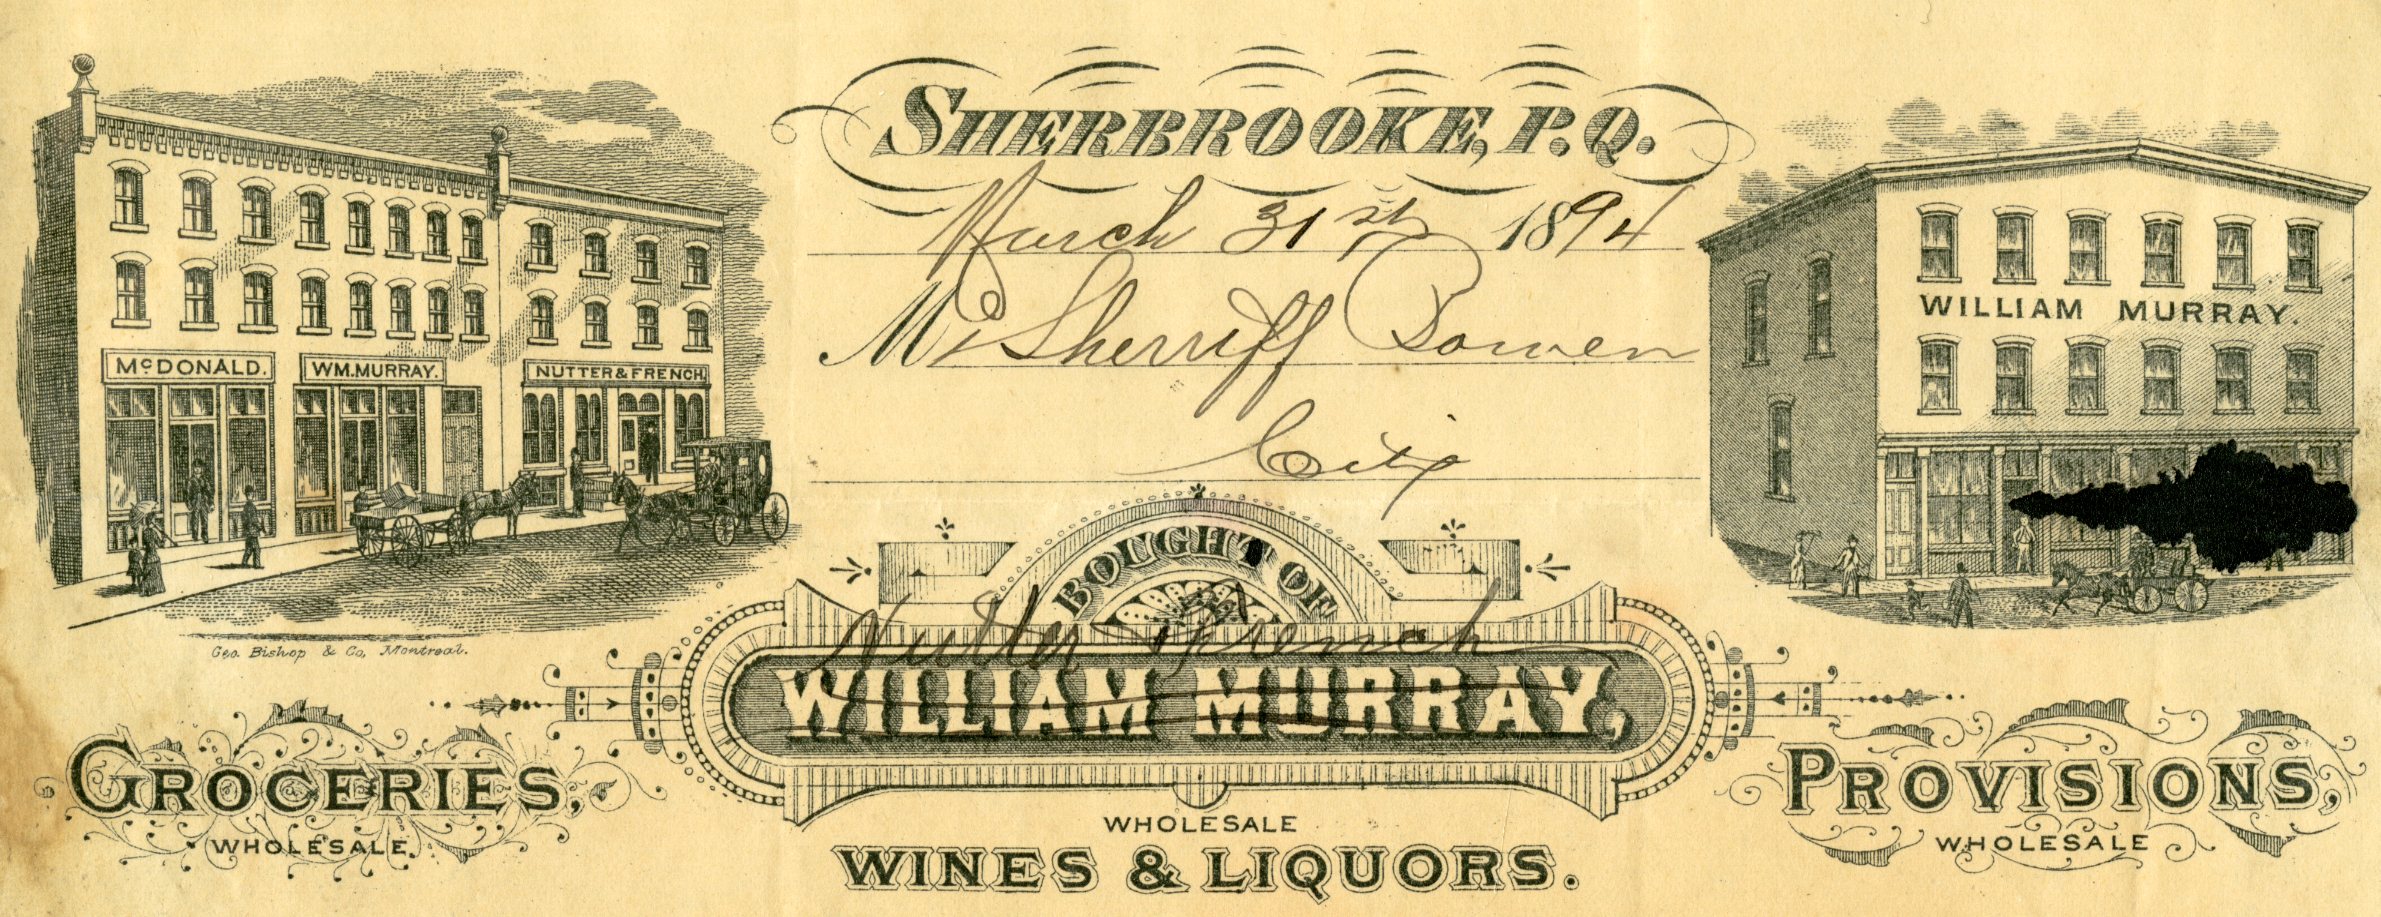 SHERBROOKE, P.Q.
March 31st 1894
Mr Sherriff Bowen
City
McDONALD.
WM. MURRAY.
NUTTER & FRENCH.
WILLIAM MURRAY.
Geo. Bishop & Co, Montreal.
BOUGHT OF
Nutter & French
WILLIAM MURRAY,
GROCERIES,
WHOLESALE
PROVISIONS,
WHOLESALE
WHOLESALE
WINES & LIQUORS.